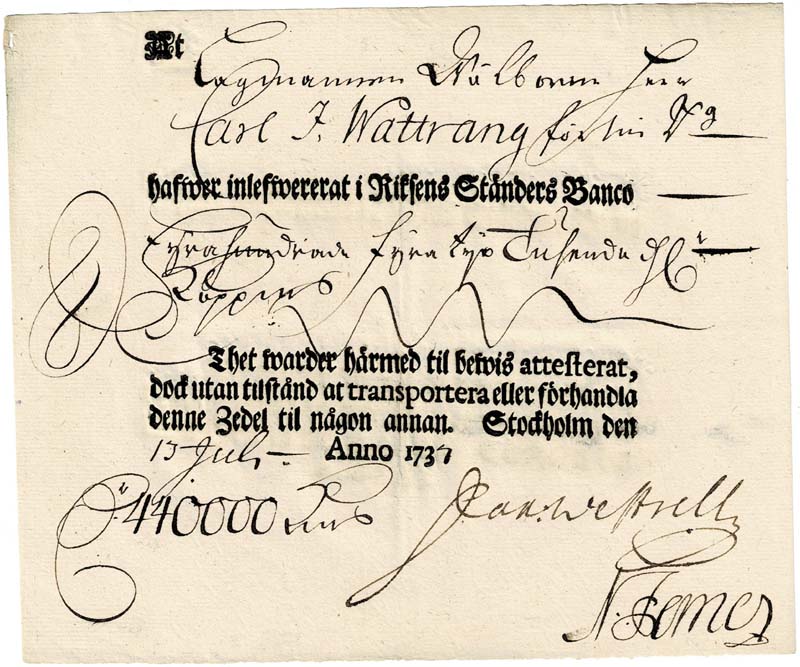 At
Lagmannen Wälborne Herr
Carl J. Wattrang för sin
hafwer inlefwererat i Riksens Ständers Banco
fyrahundrade fyra tyo Tusende
Koppms
Thet warder härmed til bewis attesterat,
dock utan tilstånd at transportera eller förhandla
denne Zedel til någon annan. Stockholm den
13 Juli Anno 1737
440000 Kms